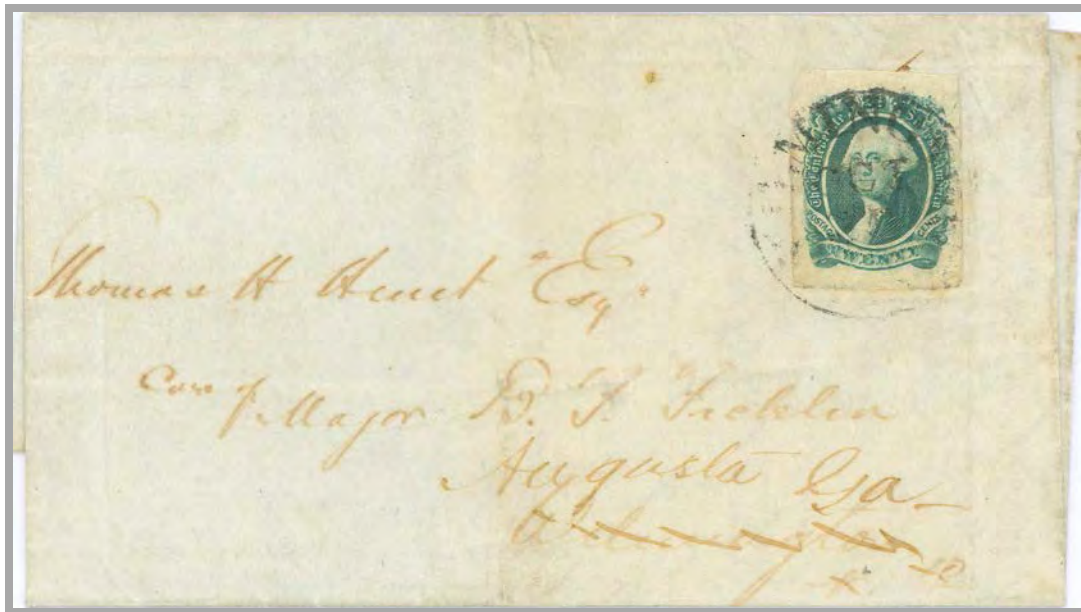 The Confederate States of America
POSTAGE CENTS
TWENTY
Thomas H Esqr
Care of
Major B. F. Ficklin
Augusta Ga
Wilmington NC